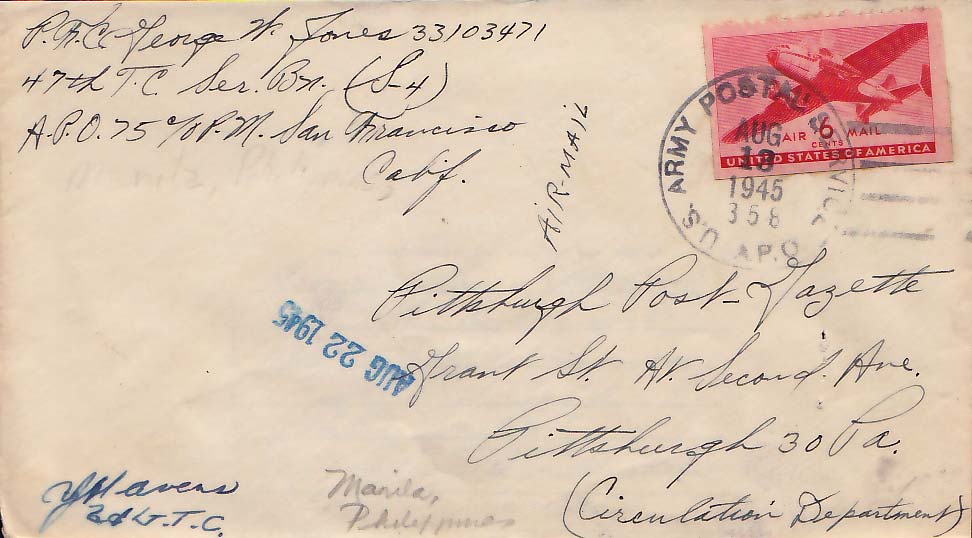 P.F.C. George W. Jones 33103471
47th T.C. Ser. Bn. (S-4)
A.P.O. 75 c/o P.M. San Francisco
Calif.
AIR-MAIL
U.S. ARMY POSTAL SERVICE
AUG
13
1945
358
A.P.O.
AIR 6 MAIL
CENTS
UNITED STATES OF AMERICA
Pittsburgh Post-Gazette
Grant St. At Second. Ave.
Pittsburgh 30 Pa.
(Circulation Department)
AUG 22 1945
Havens
2d Lt. T.C.
Manila,
Philippines